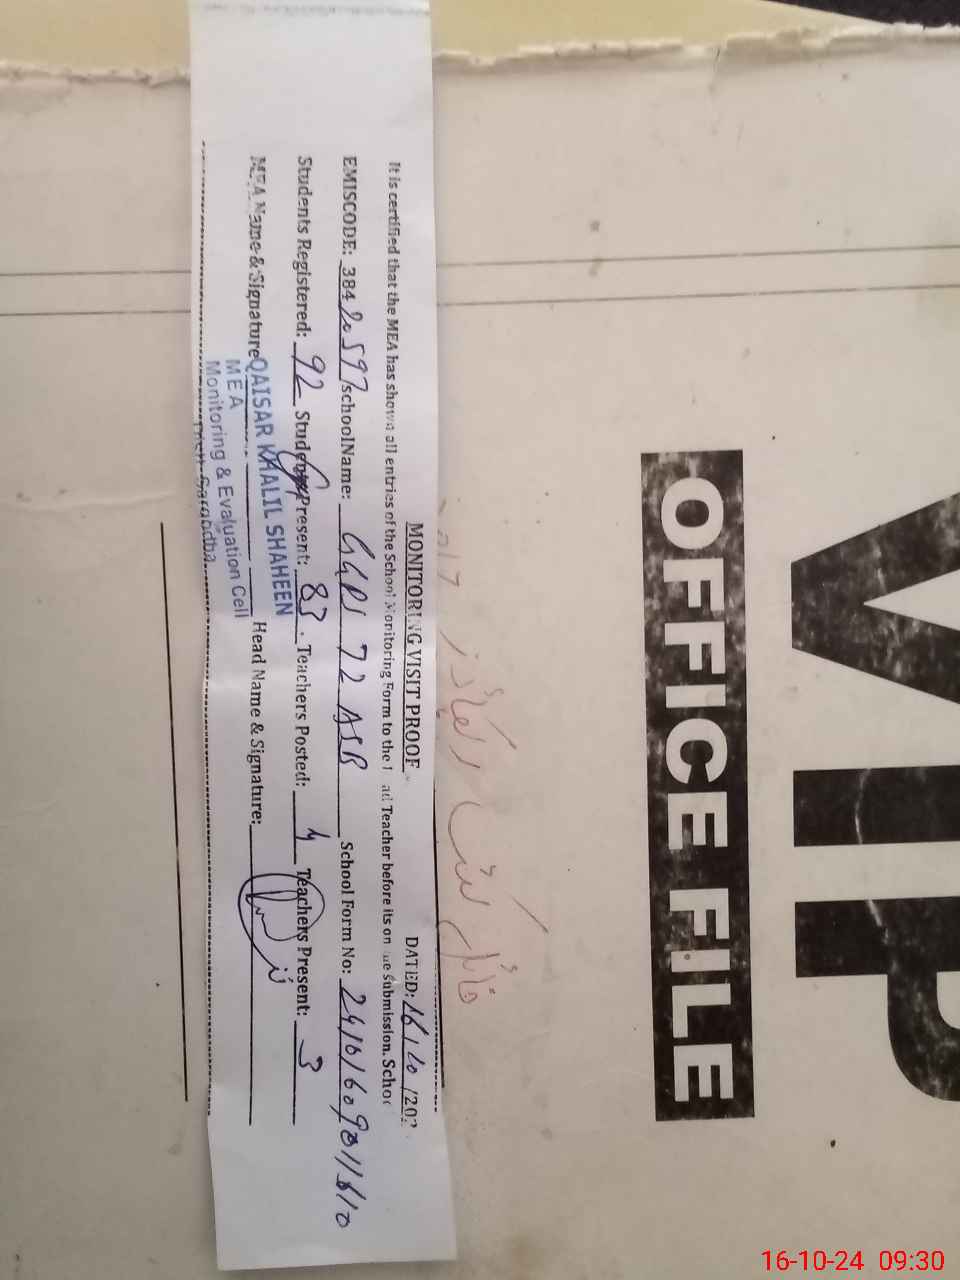 MONITORING VISIT PROOF DATED: 16/10/202
It is certified that the MEA has shown all entries of the School Monitoring Form to the ad Teacher before its on ne submission. Schoo
EMISCODE: 38420597 schoolName: GGPS 72 ASB School Form No:
Students Registered: 92 Students Present: 83. Teachers Posted: 4 Teachers Present: 3
MEA Name & Signature QAISAR KHALIL SHAHEEN Head Name & Signature:
MEA
Monitoring & Evaluation Cell
Distt. Sargodha
VIP
OFFICE FILE
16-10-24 09:30